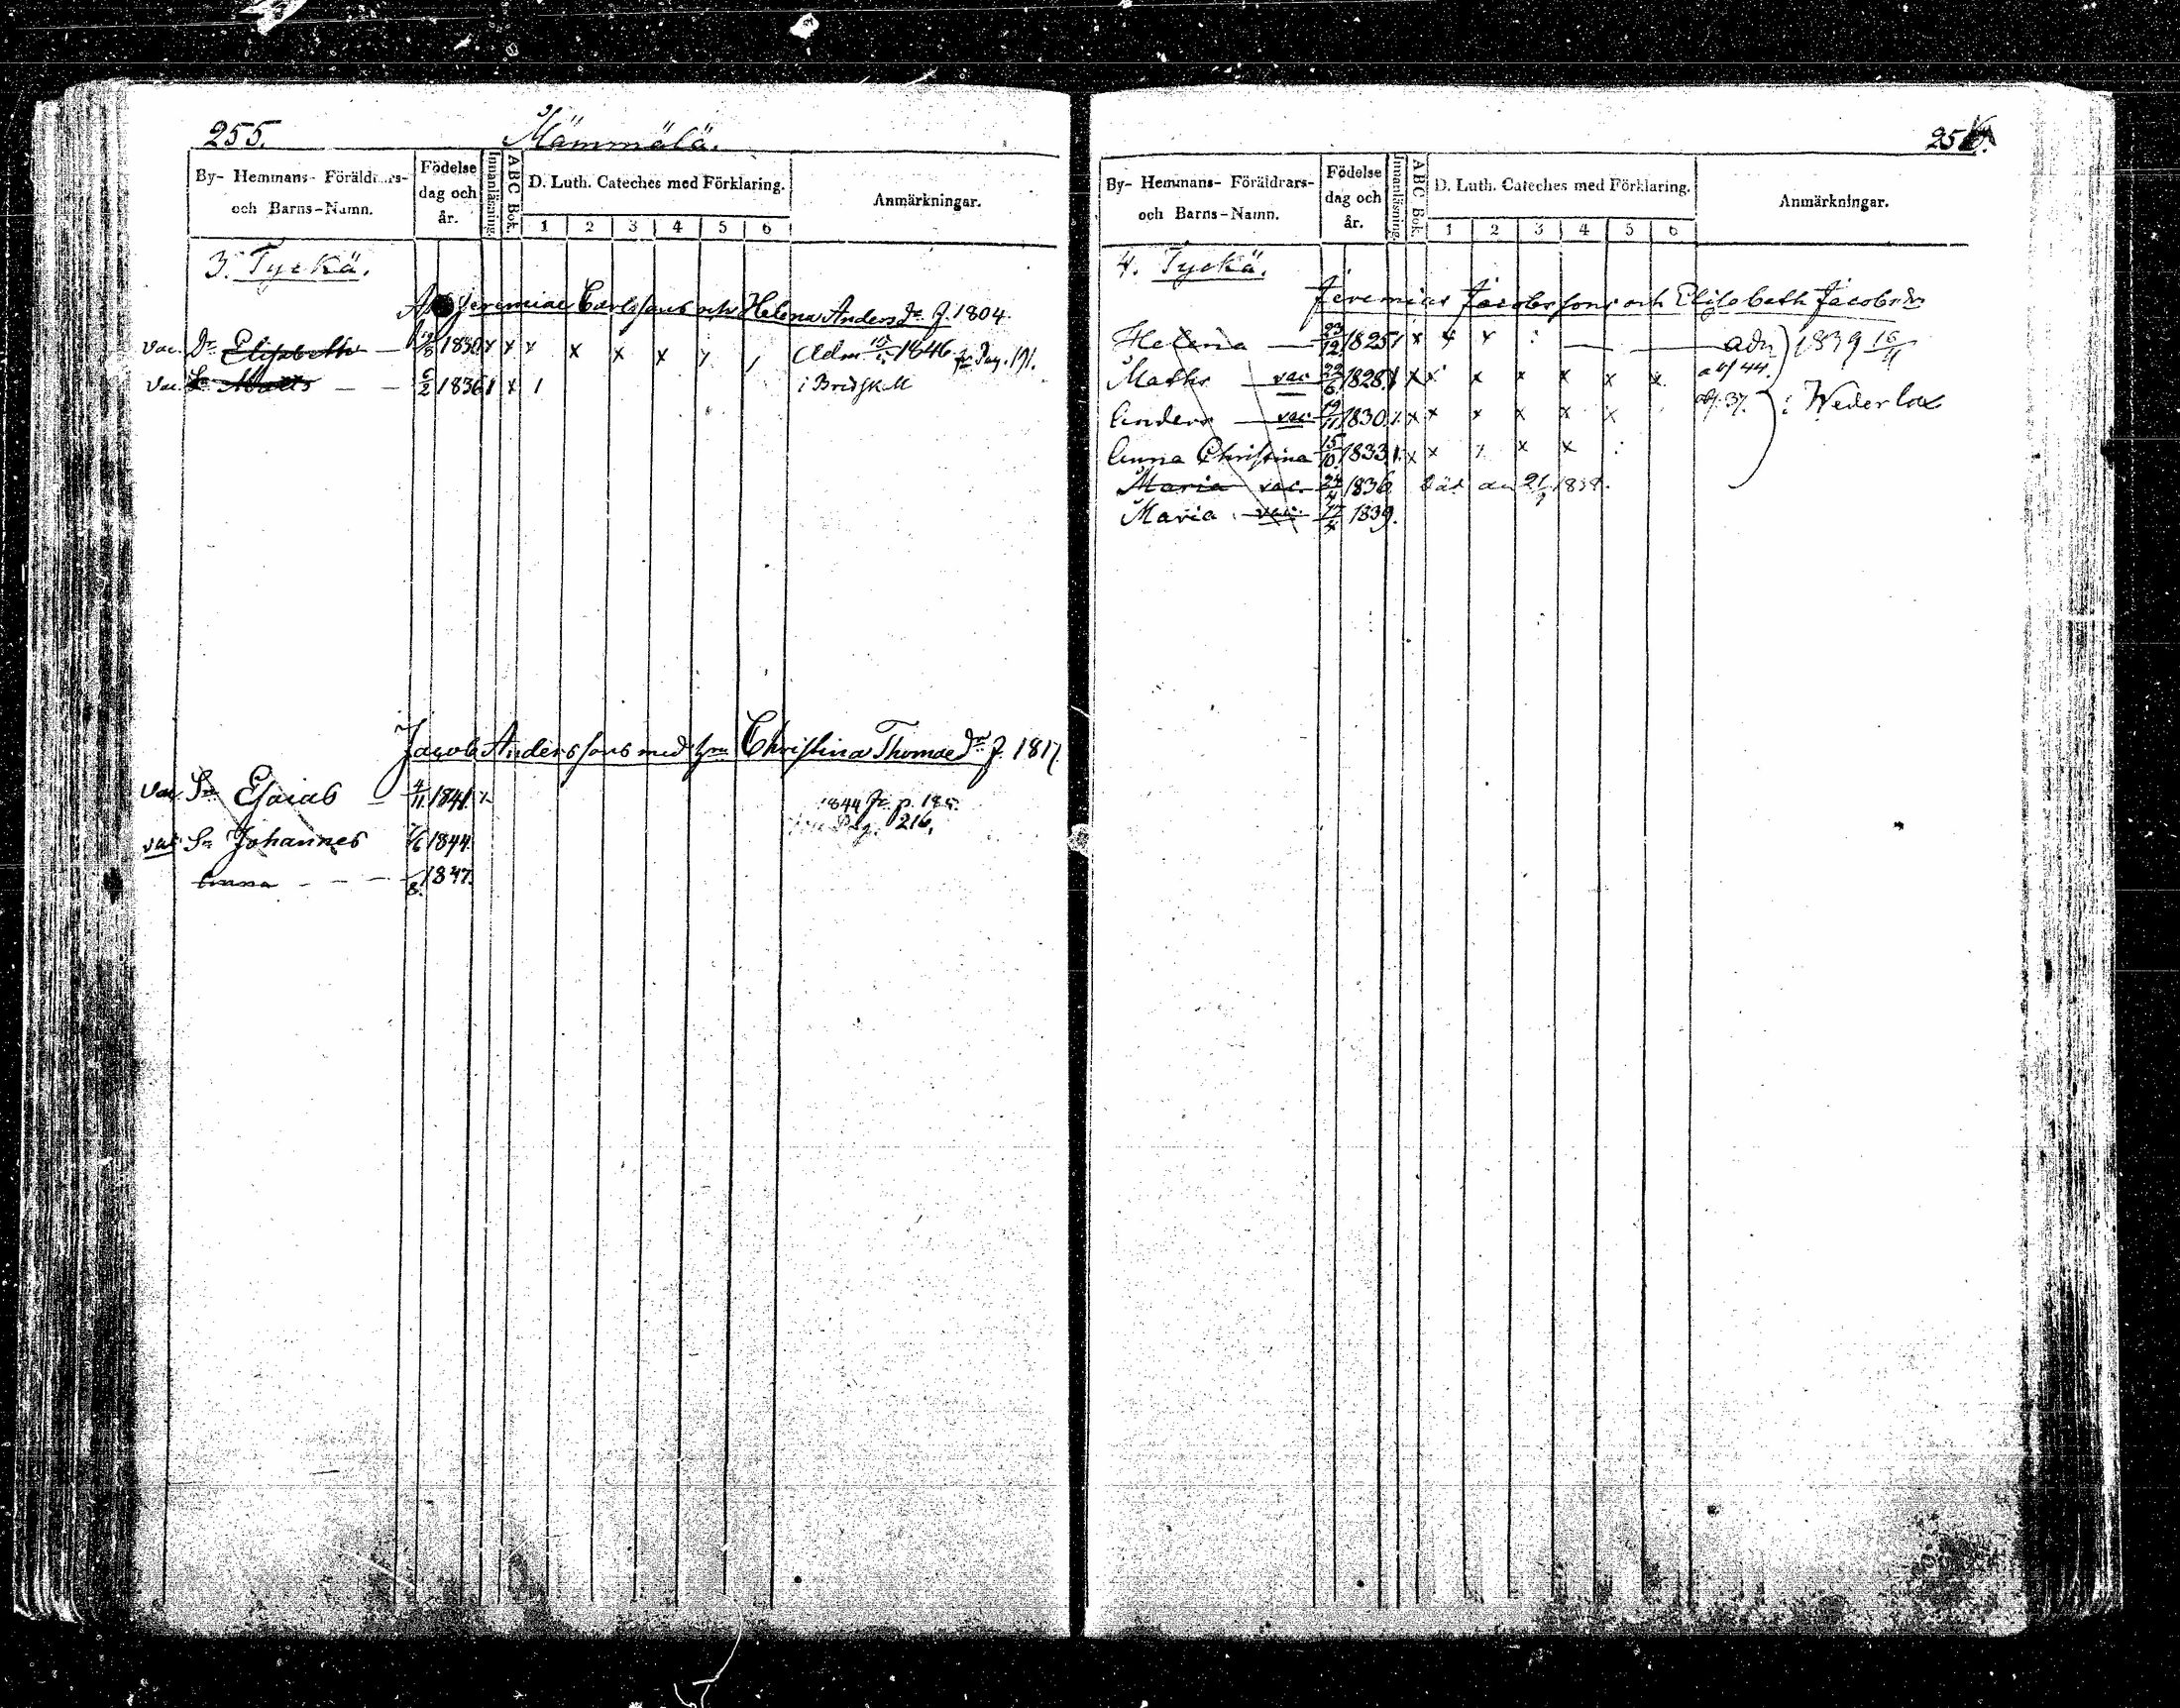 255.
Mämmälä.
By- Hemmans- Föräldrars-
och Barns-Namn.
Födelse
dag och
år.
Innanläsning.
ABC Bok.
D. Luth. Cateches med Förklaring.
1 2 3 4 5 6
Anmärkningar.
3. Tyckä.
Jeremiae Carlssons och Helena Andersdr f. 1804.
vac. Dr Elisabeth — 1830 x x x x x x Adm 1846 fr Pag. 191.
vac. Sn Matts — — 6/2 1836 x 1
Jacob Anderssons med hu Christina Thomaedr f. 1817.
vac. Sn Esaias — 4/11 1841. x 1844 fr. p. 185.
Pag. 216.
vac Sn Johannes 1844.
Anna - - - /8. 1847.
256.
By- Hemmans- Föräldrars-
och Barns-Namn.
Födelse
dag och
år.
Innanläsning.
ABC Bok.
D. Luth. Cateches med Förklaring.
1 2 3 4 5 6
Anmärkningar.
4. Tyckä.
Jeremias Jacobssons och Elisabeth Jacobsdr
Helena — 23/12 1825 x x x : — — adm 1839 16/11
Maths — vac 22/6 1828 x x x x x x x
Anders — vac 19/11 1830 x x x x x x : Wederlax
Anna Christina 15/10 1833 x x x x x :
Maria vac. 24/4 1836 1838.
Maria vac. 17/4 1839.